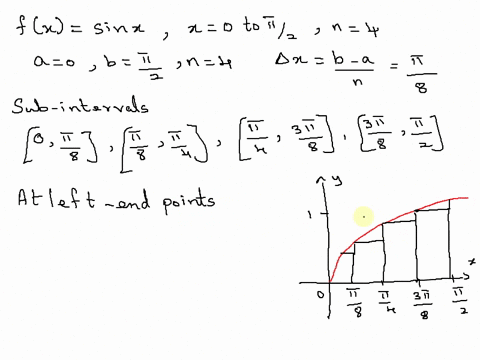 f(x) = sin x , x = 0 to π/2 , n = 4
a = 0 , b = π/2 , n = 4 Δx = b - a / n = π/8
Sub-intervals
[0, π/8], [π/8, π/4], [π/4, 3π/8], [3π/8, π/2]
At left-end points
y
1
x
0 π/8 π/4 3π/8 π/2